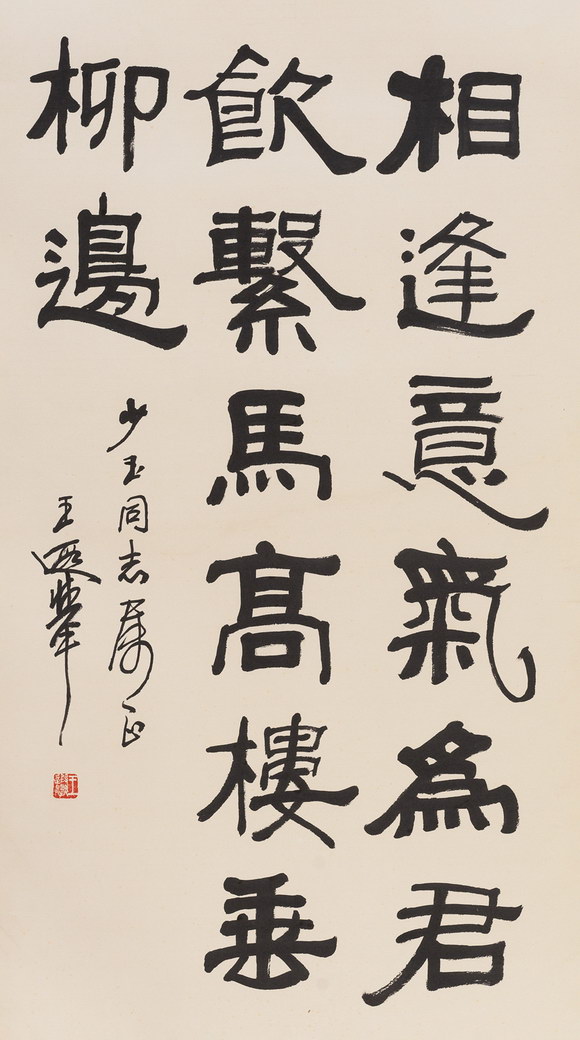 相逢意氣爲君
飲繫馬髙樓垂
柳邊
少玉同志屬正
王遐舉